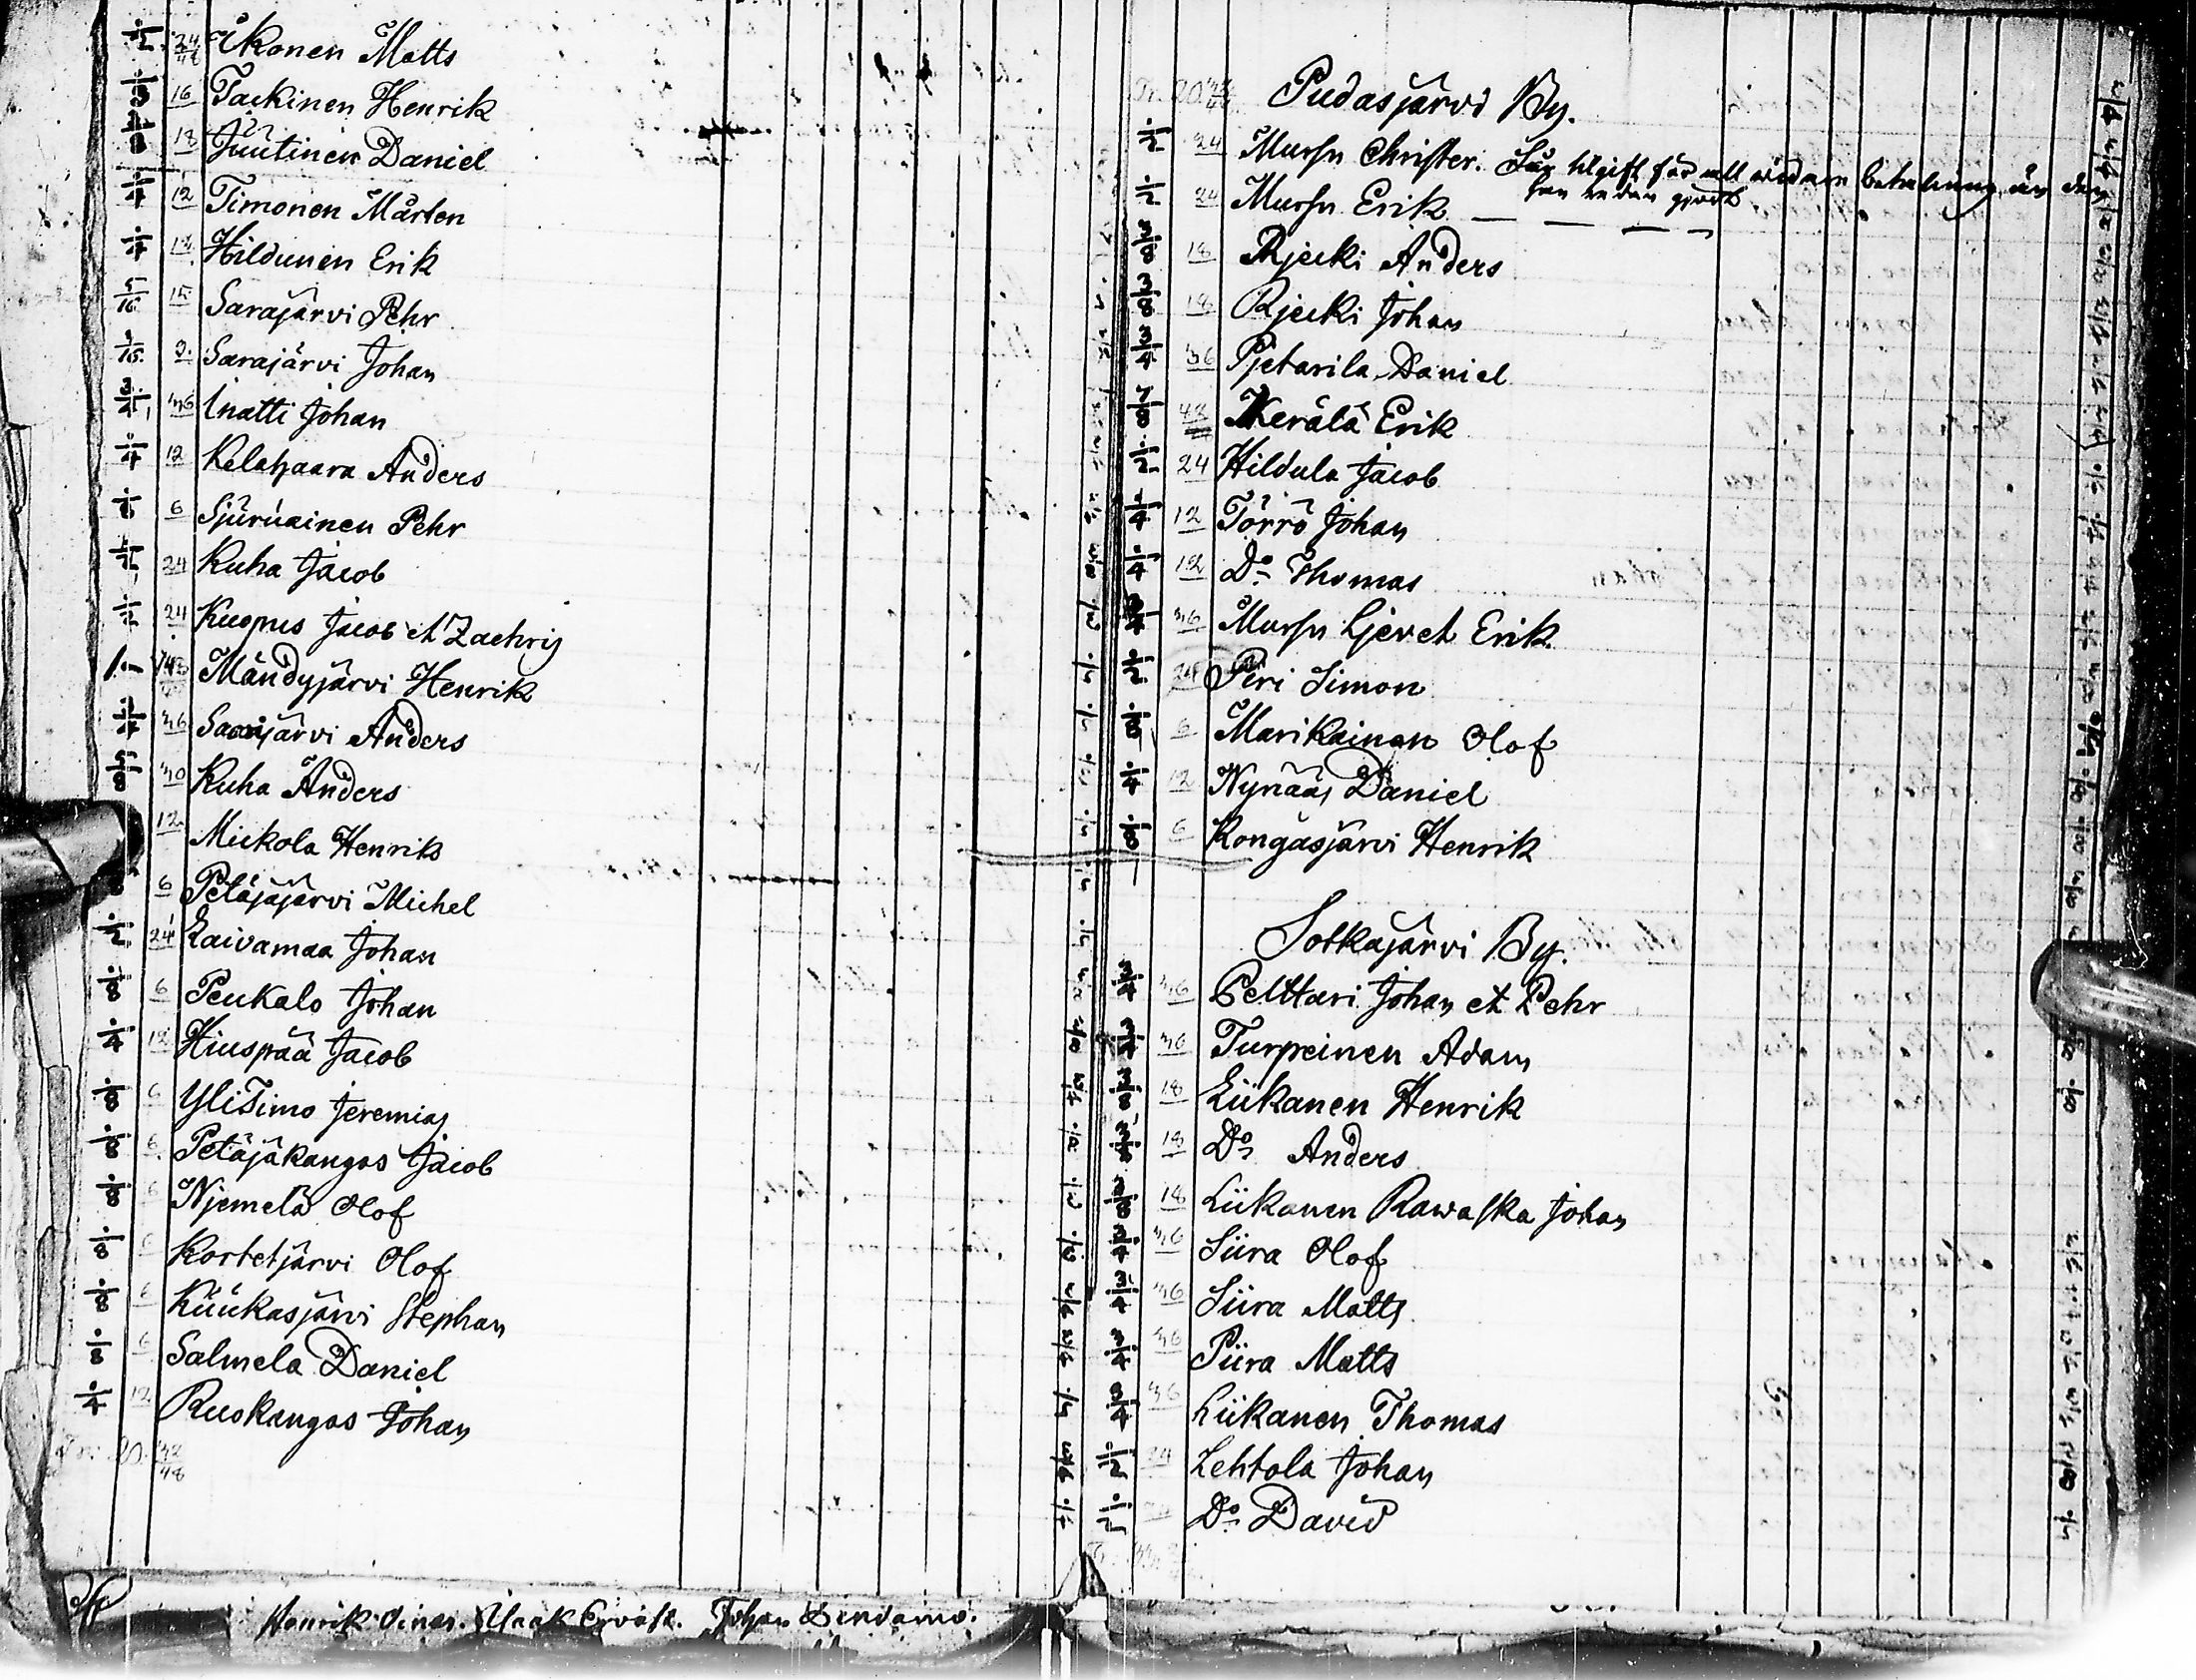 1/2 24/48 Ikonen Matts
1/3 16 Tackinen Henrik
3/8 18 Juutinen Daniel
1/4 12 Timonen Mårten
1/4 12 Hildunen Erik
5/16 15 Sarajärvi Pehr
3/16 9 Sarajärvi Johan
3/4 36 Inatti Johan
1/4 12 Kelahaara Anders
1/8 6 Sjuruainen Pehr
1/2 24 Kuha Jacob
1/2 24 Kuopus Jacob et Zachris
1 48 Mändyjärvi Henrik
3/4 36 Sarajärvi Anders
5/8 30 Kuha Anders
12 Mickola Henrik
6 Petäjäjärvi Michel
1/2 24 Kaivamaa Johan
1/8 6 Peukalo Johan
1/4 12 Hiuspää Jacob
1/8 6 YliSimo Jeremias
1/8 6 Petäjäkangas Jacob
1/8 6 Njemelä Olof
1/8 6 Kortetjärvi Olof
1/8 6 Kuukasjärvi Stephan
1/8 6 Salmela Daniel
1/4 12 Ruokangas Johan
Tr. 20. 42/48
Henrik Johan
Pudasjärvi By.
1/2 24 Mursu Christer.
han redan gjordt
1/2 24 Mursu Erik
3/8 18 Rjecki Anders
3/8 18 Rjecki Johan
3/4 36 Pjetarila Daniel
7/8 Kerälä Erik
1/2 24 Hildula Jacob
1/4 12 Törrö Johan
1/4 12 Do Thomas
3/4 36 Mursu Ljevet Erik
1/2 24 Piri Simon
1/8 6 Marikainen Olof
1/4 12 Nynääs Daniel
1/8 6 Kongasjärvi Henrik
Sotkajärvi By.
3/4 36 Pelttari Johan et Pehr
3/4 36 Turpeinen Adam
3/8 18 Liikanen Henrik
3/8 18 Do Anders
3/8 18 Liikanen Rawaska Johan
3/4 36 Siira Olof
3/4 36 Siira Matts
3/4 36 Piira Matts
3/4 36 Liikanen Thomas
1/2 24 Lehtola Johan
1/2 24 Do David